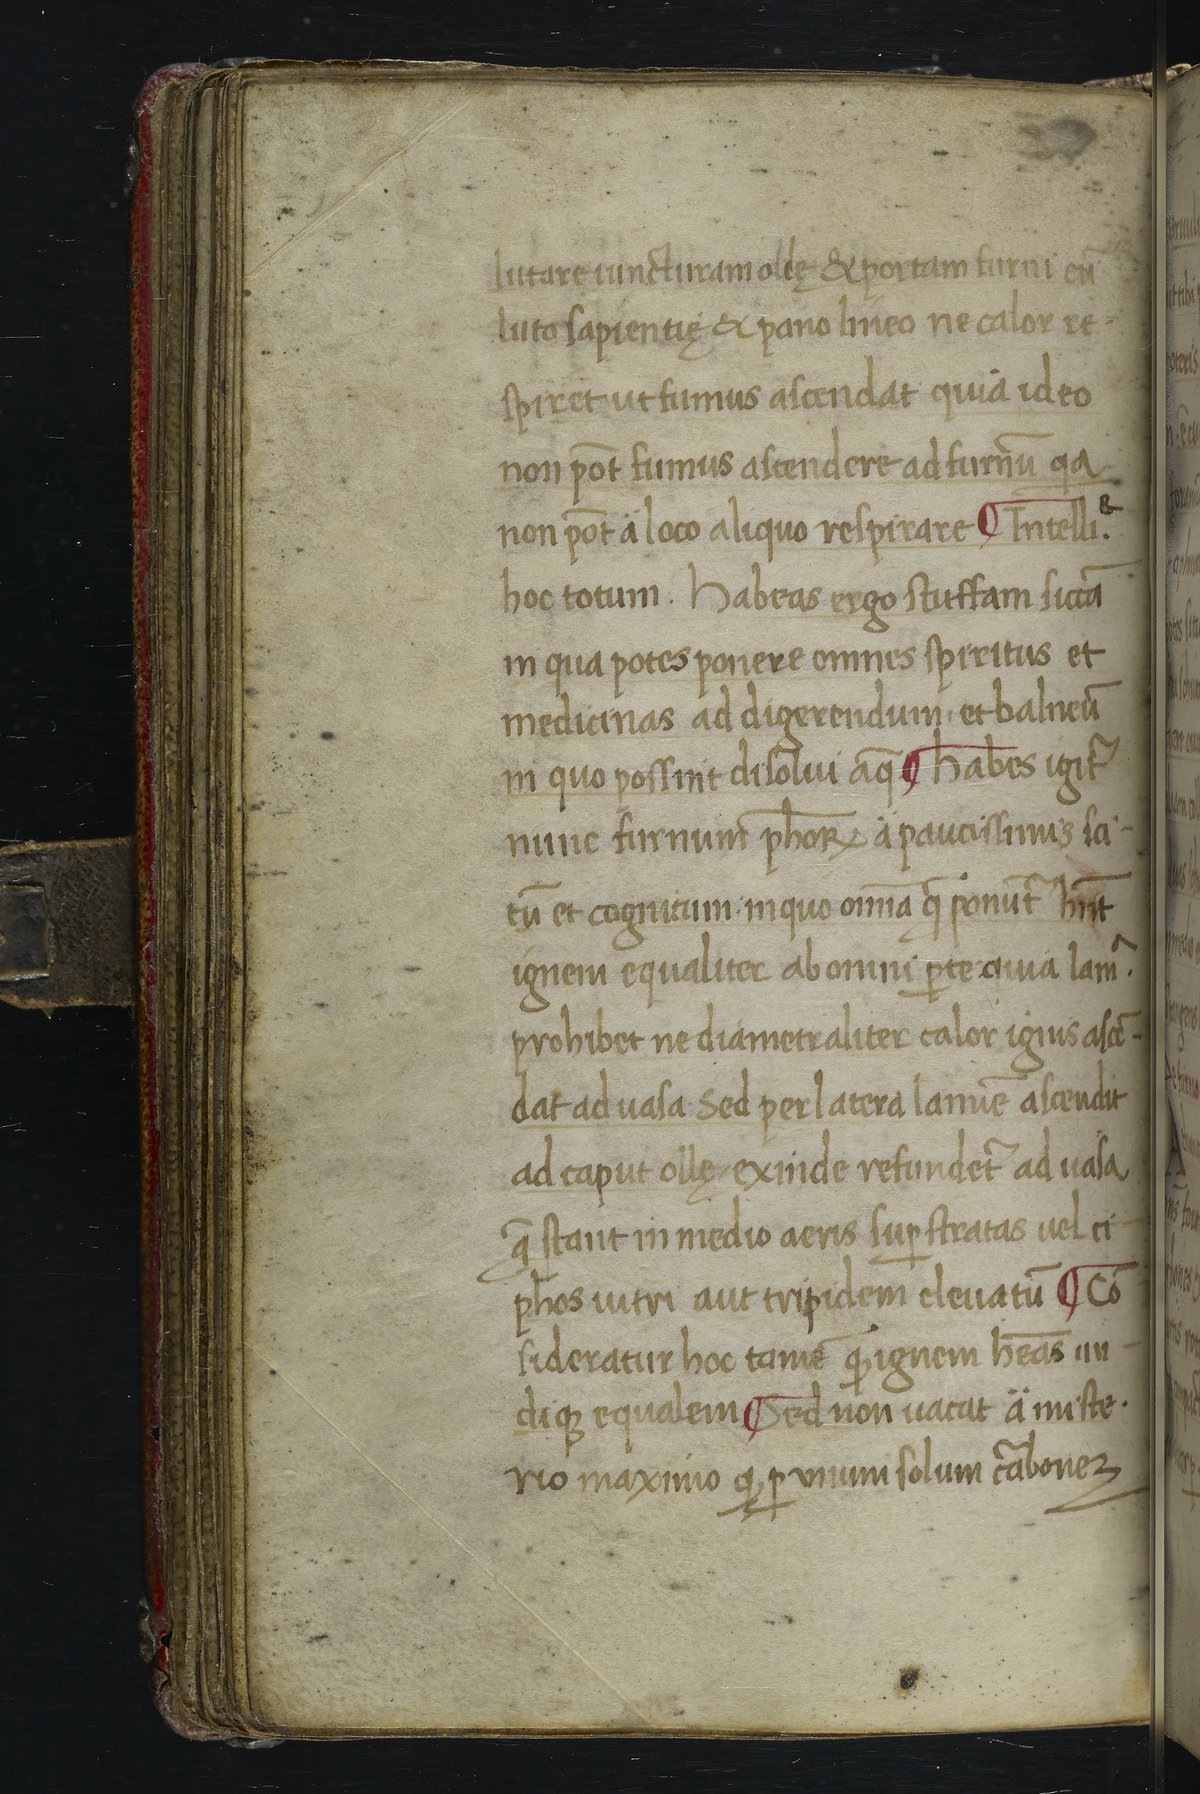 lutare iuncturam ollę & portam furni cū
luto sapientię & pano lineo ne calor re-
spiret ut fumus ascendat quia ideo
non pōt fumus ascendere ad furnū qa
non pōt ä loco aliquo respirare ¶ Intelli.
hoc totum. habeas ergo stuffam siccā
in qua potes ponere omnes spiritus et
medicinas ad digerendum et balneū
in quo possint disolui aq̄ ¶ habes igit̄
nunc furnum ph̄oꝝ ä paucissimis sci-
tū et cognitum in quo om̄ia q̄ ponūt̄ hn̄t
ignem equaliter ab omni ꝑte quia lam̄.
prohibet ne diametraliter calor ignis ascē-
dat ad uasa Sed per latera laminē ascendit
ad caput ollę exinde refundet̄ ad uasa
q̄ stant in medio aeris suꝑ stratas uel ci-
phos uitri aut tripidem eleuatū ¶ Cō
sideratur hoc tamē ꝙ ignem hēas un-
diqꝫ equalem ¶ Sed non uacat ä miste-
rio maximo ꝙ ꝑ unum solum c̄abonem